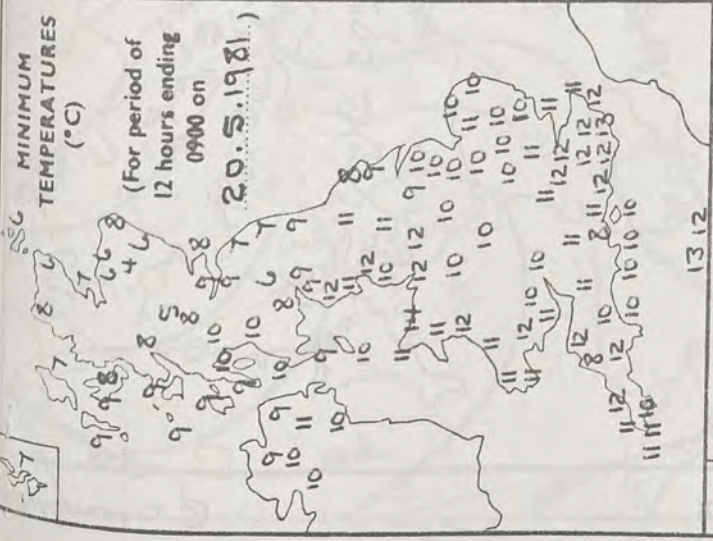 MINIMUM
TEMPERATURES
(°C)
(For period of
12 hours ending
0900 on
20.5.1981)
6
7
8 6
7 7
6 6 8
9 9 8 4 6
9
9 8 5 8
9 9 8 9 7
10 9 7
9 10 10 6 9
9 10 8 9
9 11 12 11 8 7
10 10 9 12 11
10 10 10
11 14 12 12 9 10 10
11 10 10 10 10
12 10 11 10
11 10 10
11 12 10 10 10 10
11 11 11 11
12 12 11
8 12 11 11 12 12 12
12 10 8 11 12 12 13 12
12 10 10 10 10
11 11 10
13 12